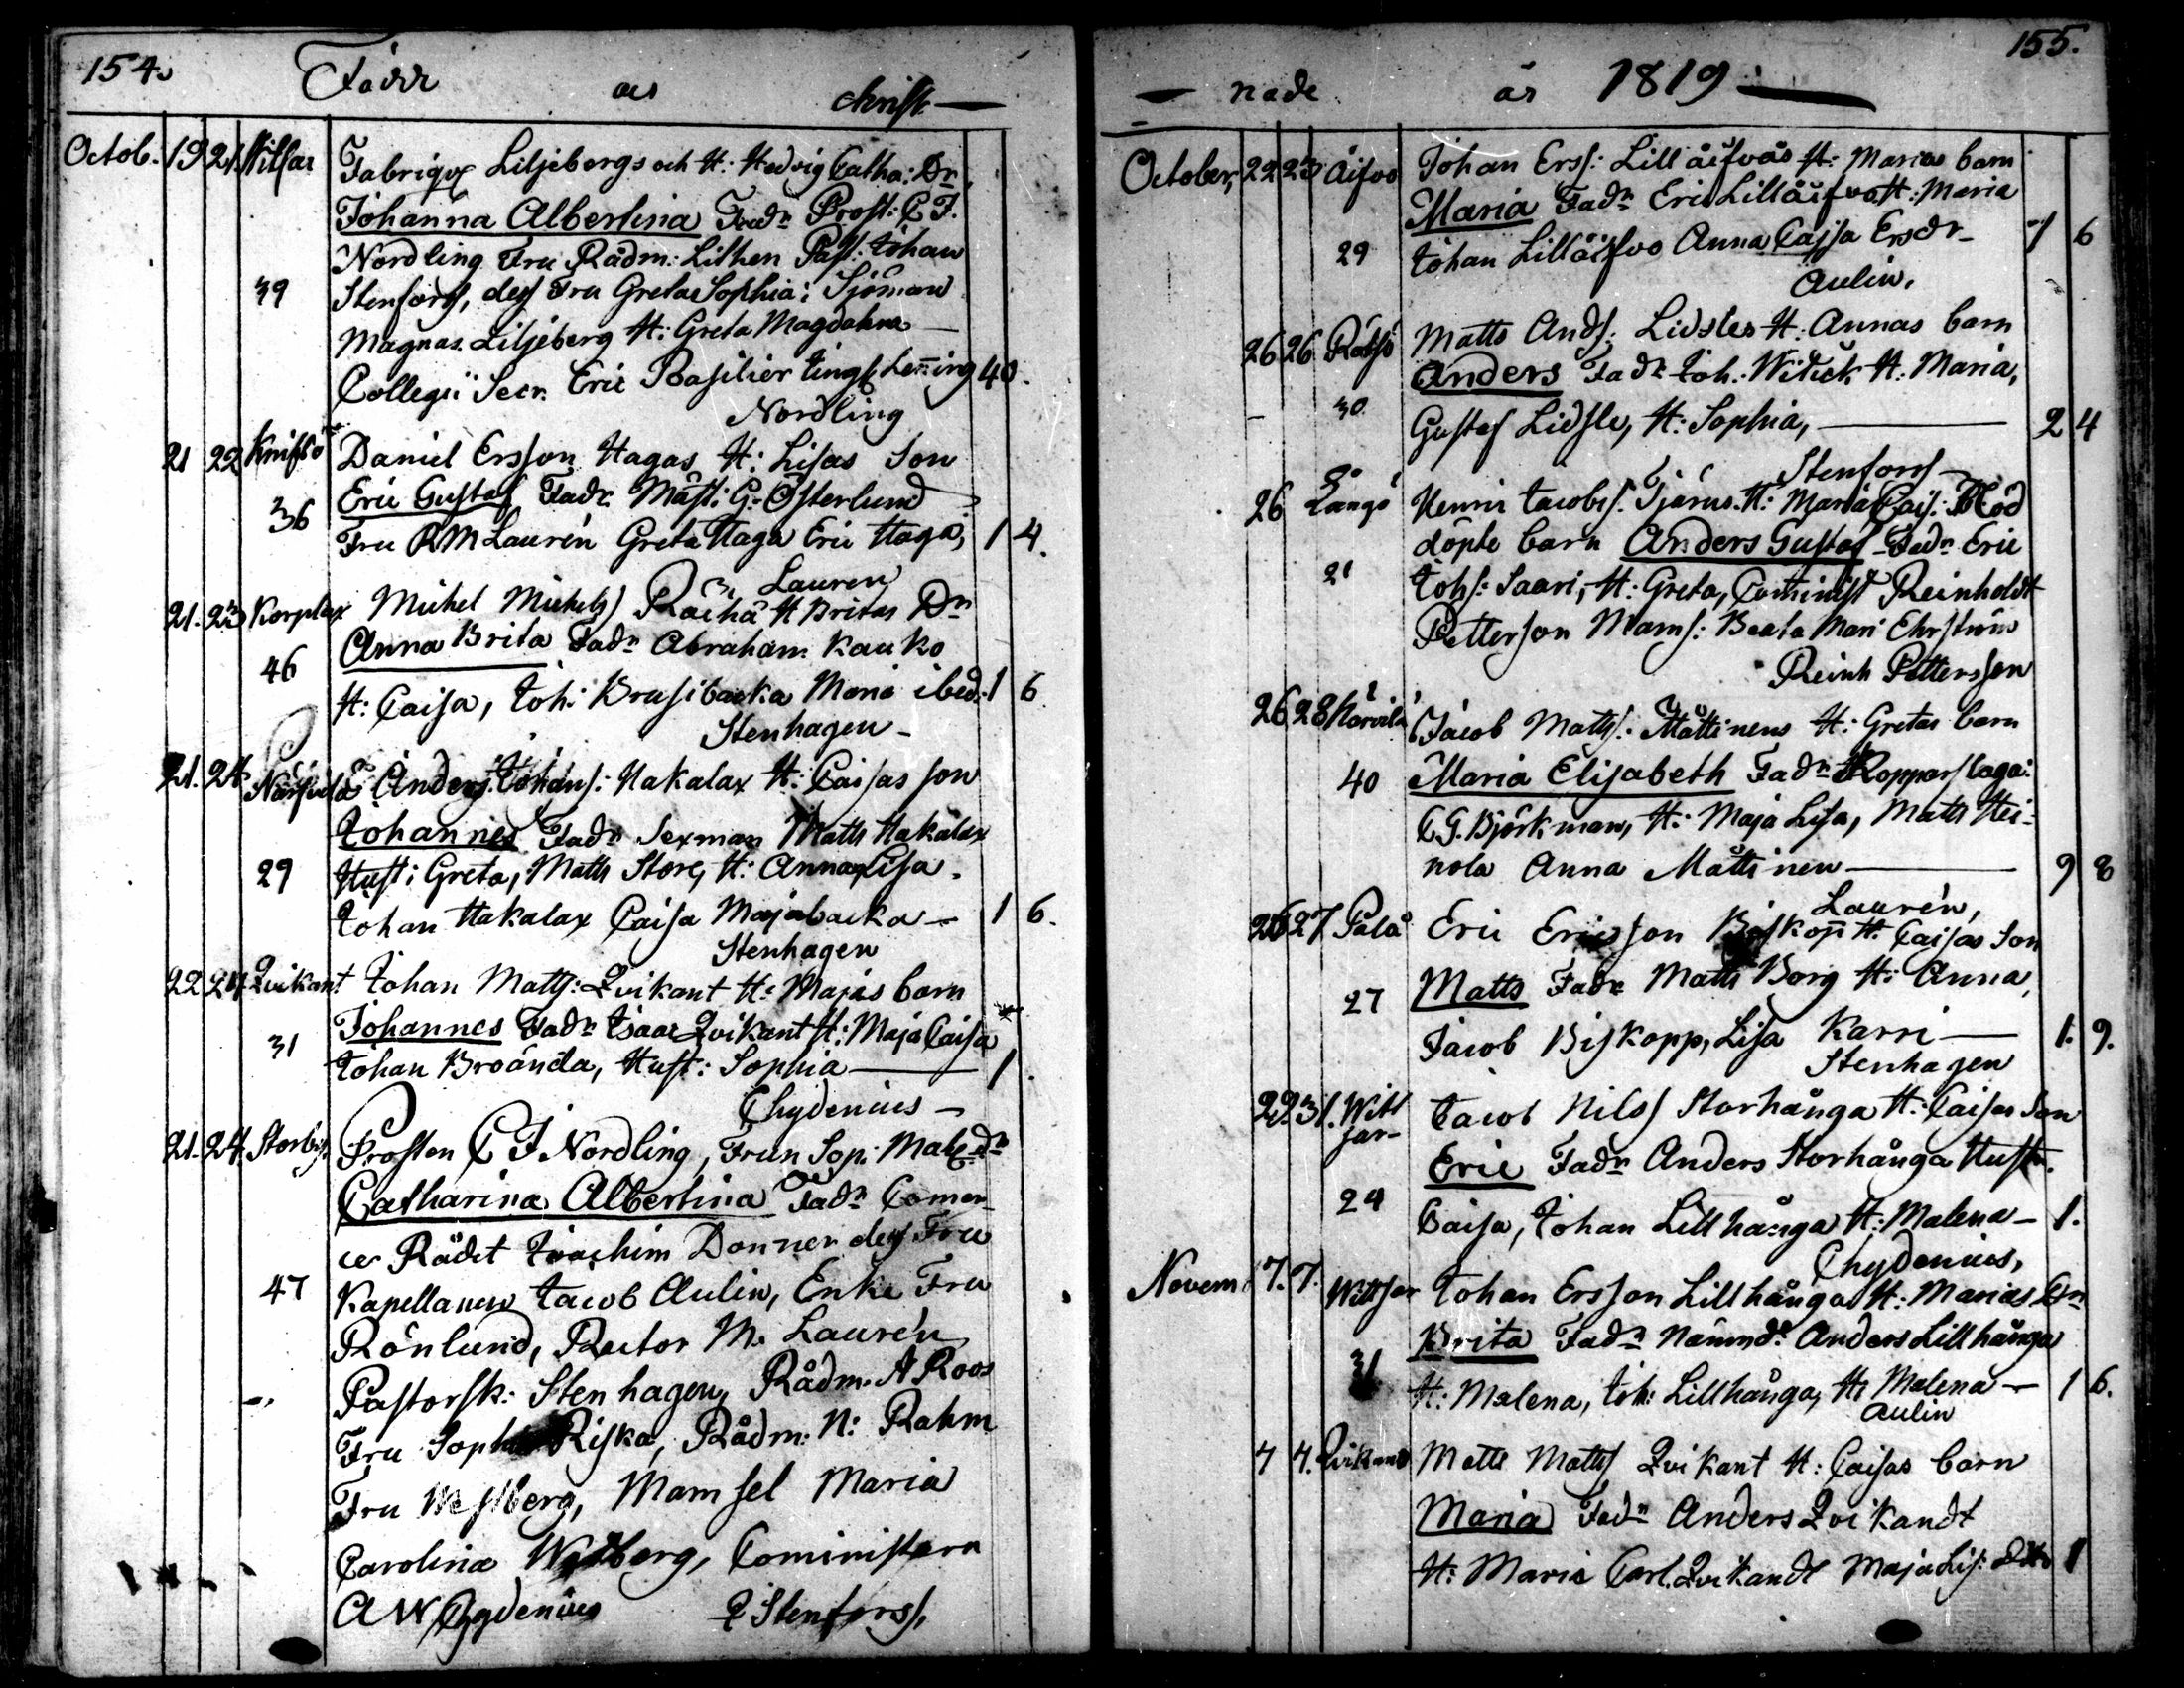 154.
Född och christ
Octob. 19 21. Wilsar Fabriqx Liljebergs och H: Hedvig Catha: Dr
Johanna Albertina Fadr Prost: C F.
Nordling Fru Rådm: Lithen Past: Johan
39 Stenforss, dess Fru Greta Sophia; Sjöman
Magnus Liljeberg H: Greta Magdalena
Collegii Secr. Eric Basilier 40.
Nordling
21 22 Knifsö Daniel Ersson Hagas H: Lisas Son
Eric Gustaf Fadr Mäst: G. Österlund
36 Fru RM Laurén Greta Haga Eric Haga, 1 4.
Lauren
21. 23 Korplax Michel Michels) Räihä H Britas Dr
Anna Brita Fadr Abraham Kauko
46 H: Caisa, Joh: Brusibacka Maria ibed: 1 6
Stenhagen
21. 24 Anders Johans: Hakalax H: Caisas son
Johannes Fadr Sexman Matts Hakalax
29 Hust: Greta, Matts Store, H: Anna Lisa.
Johan Hakalax Caisa Majabacka 1 6.
Stenhagen
22 24 Qvikant Johan Matts: Qvikant H: Majas barn
31 Johannes Fadr Isaac Qvikant H: Maja Caisa
Johan Broända, Hust: Sophia 1.
Chydenius
21. 24. Storby Prosten C F Nordling, Frun Sop: Mat: dr
Catharina Albertina Fadr Comer
ce Rådet Joachim Donner dess Fru
47 Kapellanen Jacob Aulin, Enke Fru
Rönlund, Rector M. Laurén
Pastorsk: Stenhagen, Rådm. A Roos
Fru Sophia Riska, Rådm: N: Rahm
Fru Westberg, Mamsel Maria
Carolina Westberg, Cominstern
A W Chydenius P Stenforss,
155.
nade år 1819
October, 22 23 Åifvo Johan Erss: Lillåifvos H: Marias barn
Maria Fadr Eric Lillåifvo H: Maria
29 Johan Lillåifvo Anna Cajsa Ersdr 1 6
Aulin.
26 26 Rötsö Matts Ands: Lidsles H: Annas barn
Anders Fadr Joh: Witick H: Maria,
30 Gustaf Lidsle, H: Sophia, 2 4
Stenforss
26 Långö Henric Jacobs: Tjärus. H: Maria Cais: Nöd
döpte barn Anders Gustaf Fadr Eric
21 Johs: Saari, H: Greta, Cominist Reinholdt
Petterson Mams: Beata Mari Ehrström
Reinh Pettersson
26 28 Jacob Matts: Måttinens H: Gretas barn
40 Maria Elisabeth Fadr Kopparslaga:
C G. Björkman, H: Maja Lisa, Matts Hei-
nola Anna Måttinen 9 8
Laurén,
26 27 Palå Eric Ericsson Biskop H: Caisas Son
27 Matts Fadr Matts Borg H: Anna,
Jacob Biskopp, Lisa Karri 1. 9.
Stenhagen
22. 31. Witt
sar Jacob Nilss Storhånga H: Caisas Son
Eric Fadr Anders Storhånga Hust.
24 Caisa, Johan Lillhånga H: Malena 1.
Chydenius,
Novem: 7. 7. Wittsar Johan Ersson Lillhånga H: Marias Dr
Brita Fadr Nämnd: Anders Lillhånga
31 H: Malena, Joh: Lillhånga, H: Malena 1 6.
Aulin
4 4. Qvikant Matts Matts Qvikant H: Caisas barn
Maria Fadr Anders Qvikandt
H: Maria Carl. Qvikandt Maja Lis: dito 1